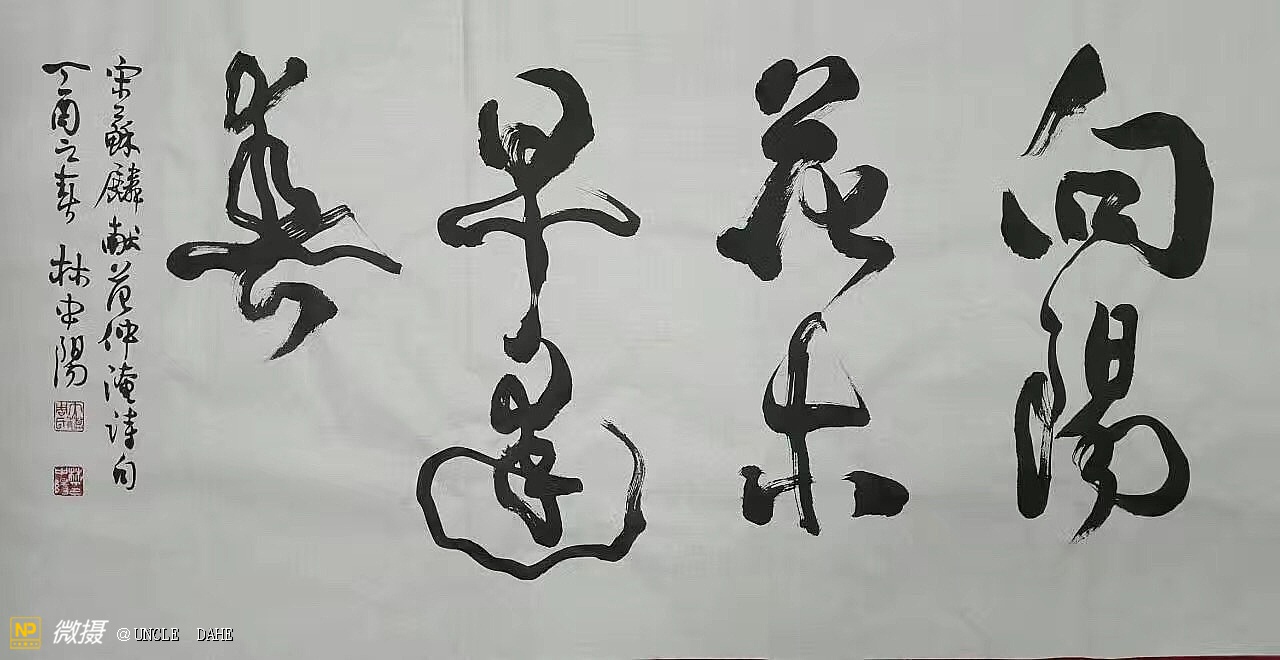 向陽
花木
早逢
春
宋蘇麟献范仲淹诗句
丁酉之春 林中陽
NP 微摄 @UNCLE DAHE